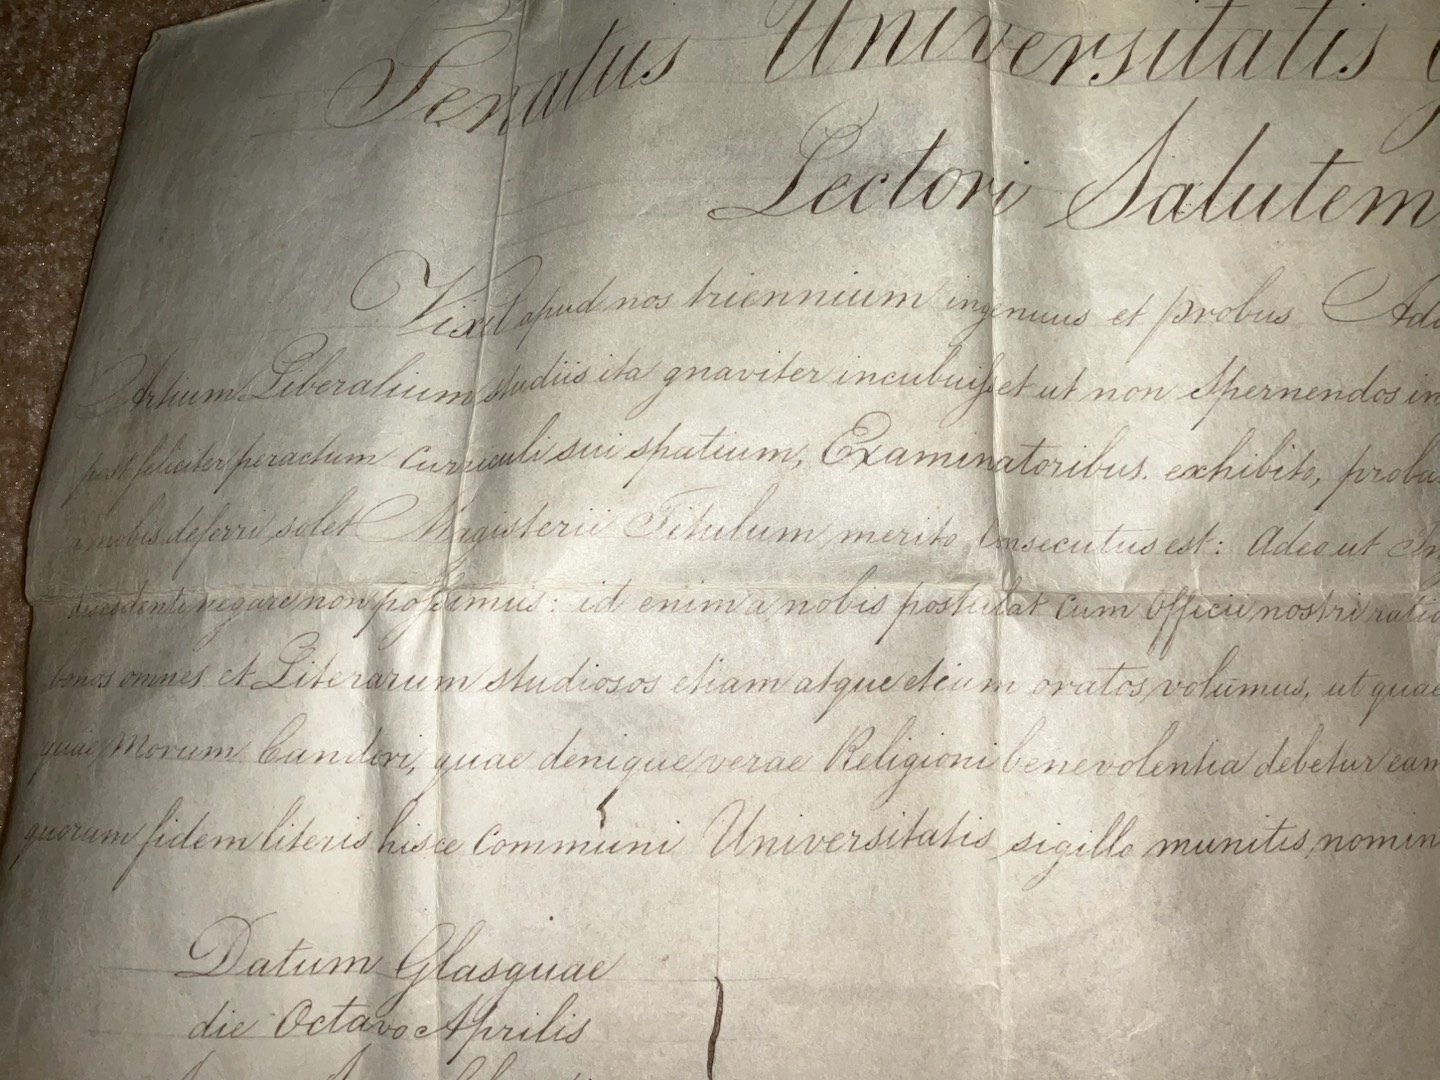 Senatus Universitatis G
Lectori Salutem
Vixit apud nos triennium ingenuus et probus Ada
Artium Liberalium studiis ita gnaviter incubuisset ut non Spernendos in
post feliciter peractum curriculi sui spatium, Examinatoribus. exhibito, proba
a nobis deferri solet Magisterii Titulum merito Consecutus est: Adeo ut In
discedenti negare non possumus: id enim a nobis postulat cum Officii nostri ratio
bonos omnes et Literarum studiosos etiam atque etiam oratos volumus, ut quae
quae Morum Candori, quae denique verae Religioni benevolentia debetur eam
quorum fidem literis hisce communi Universitatis sigillo munitis, nomin
Datum Glasguae
die Octavo Aprilis